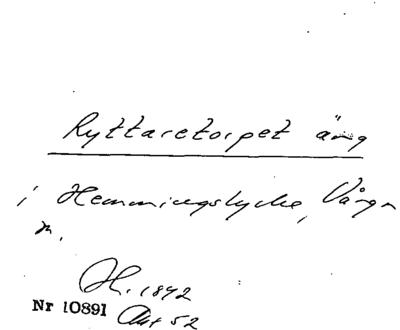 Ryttaretorpet äng
i Hemmingslycke, Vånga
n.
H. 1892
Nr 10891 Akt 52